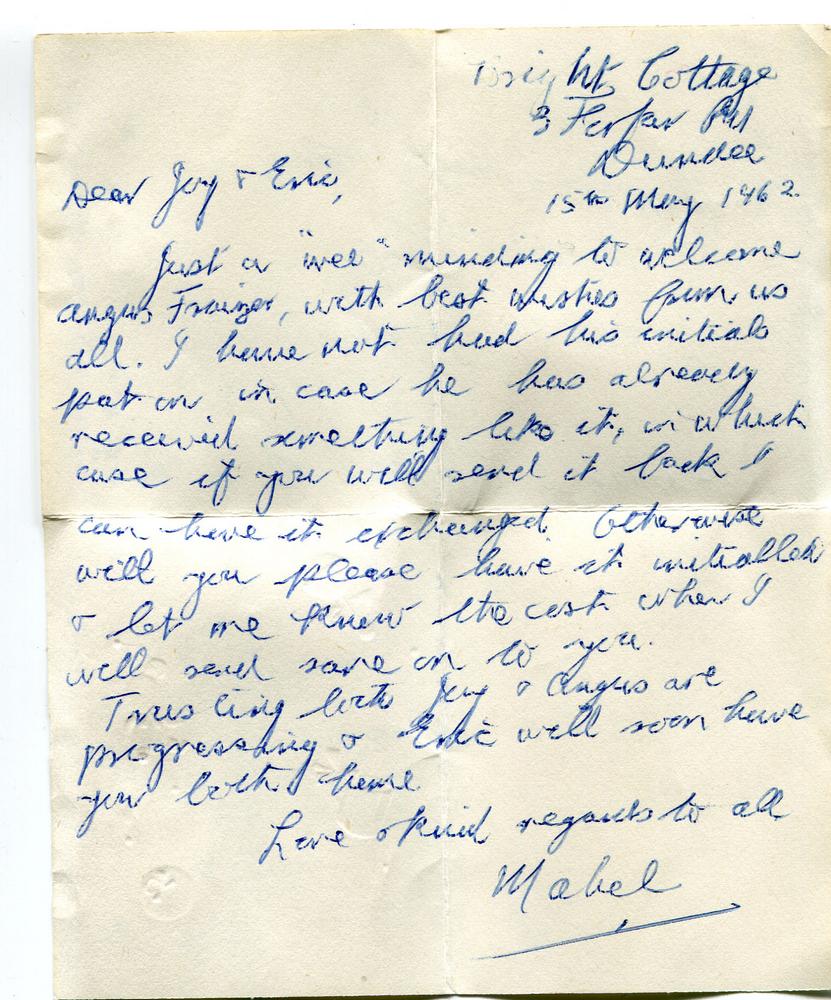 Bright Cottage
3 Forfar Rd
Dundee
15th May 1962.
Dear Joy & Eric,
Just a "wee" minding to welcome
Angus Frazer, with best wishes from us
all. I have not had his initials
put on in case he has already
received something like it, in which
case if you will send it back I
can have it exchanged. Otherwise
will you please have it initialled
& let me know the cost when I
will send same on to you.
Trusting both Joy & Angus are
progressing & Eric will soon have
you both home
Love & kind regards to all
Mabel